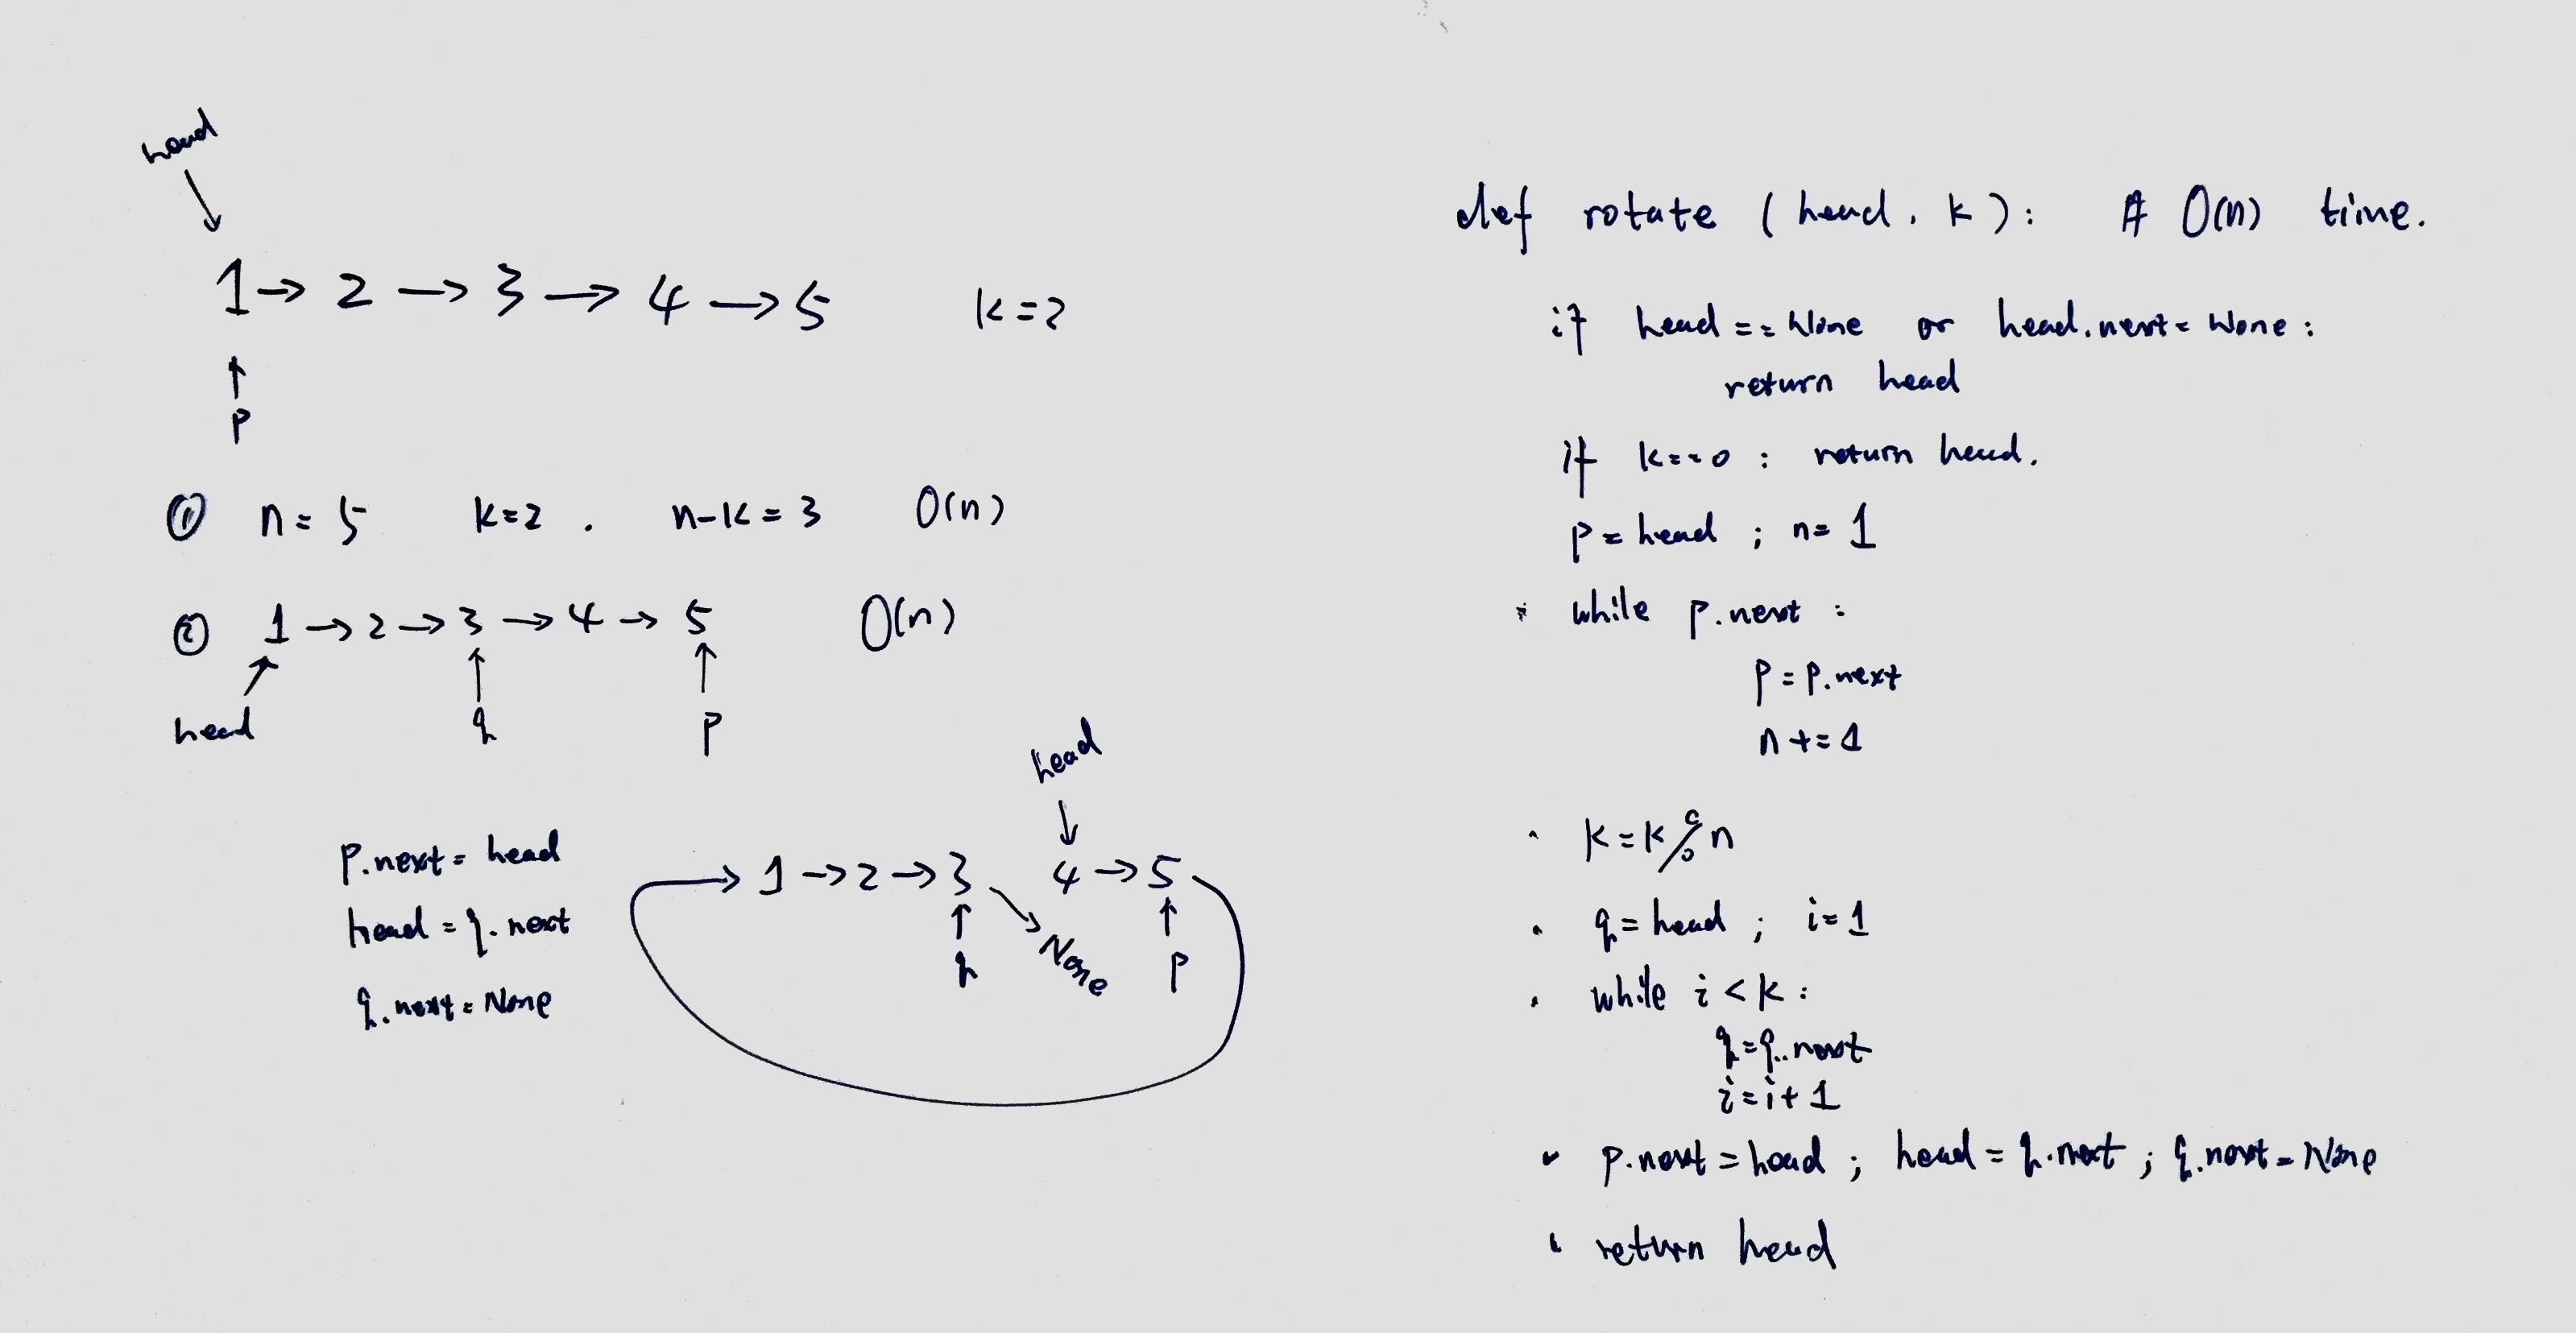 head
1 → 2 → 3 → 4 → 5 k=2
↑
p
① n = 5 k=2 . n-k = 3 O(n)
② 1 → 2 → 3 → 4 → 5 O(n)
head q p
p.next = head
head = q.next
q.next = None
head
→ 1 → 2 → 3 4 → 5
q None p
def rotate (head, k): # O(n) time.
if head == None or head.next = None :
return head
if k==0 : return head.
p = head ; n= 1
while p.next :
p = p.next
n += 1
k = k % n
q = head ; i = 1
while i < k :
q = q.next
i = i + 1
p.next = head ; head = q.next ; q.next = None
return head